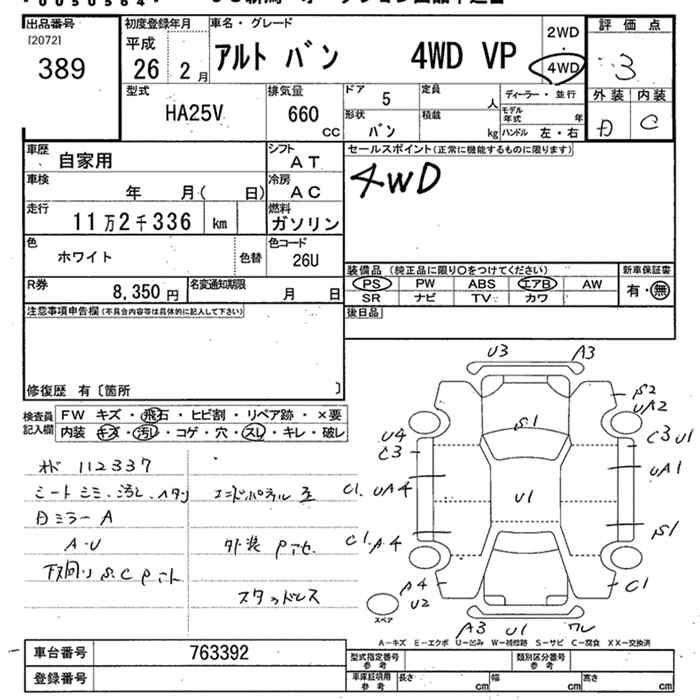 出品番号
120721
389
初度登録年月
平成
26 2月
車名・グレード
アルト バン 4WD VP
2WD
・
4WD
評価点
3
外装 内装
C
型式
HA25V
排気量
660
cc
ドア 5
形状 バン
定員 人
積載 kg
ディーラー・並行
モデル年式 年
ハンドル 左・右
車歴
自家用
シフト
AT
車検
年 月( 日)
冷房
AC
走行
11万2千336 km
燃料
ガソリン
色
ホワイト
色替
色コード
26U
R券
8,350円
名変通知期限
月 日
セールスポイント(正常に機能するものに限ります)
4WD
装備品(純正品に限り○をつけてください)
PS PW ABS エアB AW
SR ナビ TV カワ
新車保証書
有・無
後日品
注意事項申告欄(不具合内容等は具体的に記入して下さい)
修復歴 有〔箇所 〕
検査員記入欄
FW キズ・飛石・ヒビ割・リペア跡・×要
内装 キズ・汚レ・コゲ・穴・スレ・キレ・破レ
112337
ミラーA
A・U
外装
スタッドレス
U3 A3
S2
UA2
S1
U4
C3
C3 U1
UA4
UA1
C1.
U1
C1.
A4
S1
A4
U2
C1
スペア
A3 U1 ワレ
A−キズ E−エクボ U−凹み W−補修跡 S−サビ C−腐食 XX−交換済
車台番号
763392
登録番号
型式指定番号
参考
類別区分番号
参考
車庫証明用
参考
長さ cm
幅 cm
高さ cm